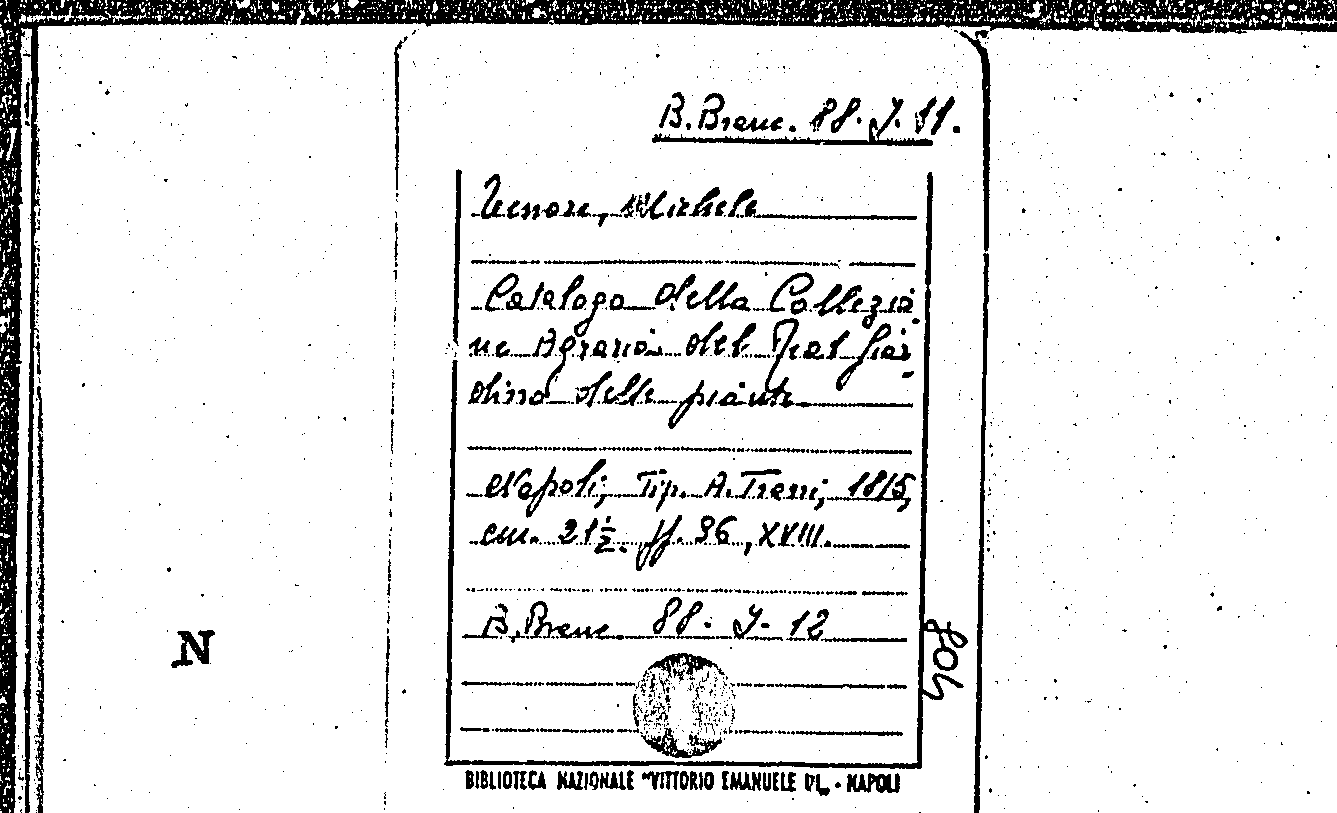 B. Branc. 88. J. 11.
Tenore, Michele
Catalogo della Collezio
ne Agraria del Real Giar
dino delle piante
Napoli, Tip. A. Trani, 1815,
cm. 21 1/2. pp. 96, XVIII.
N
B. Branc. 88. J. 12
804
BIBLIOTECA NAZIONALE "VITTORIO EMANUELE III„ - NAPOLI